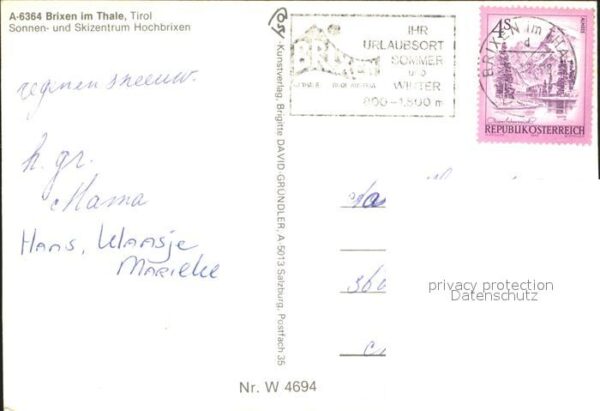 A-6364 Brixen im Thale, Tirol
Sonnen- und Skizentrum Hochbrixen
regen en sneeuw.
h. gr.
Mama
HANS, KLAASJE
MARIEKE
Kunstverlag, Brigitte DAVID-GRÜNDLER, A-5013 Salzburg, Postfach 35
Nr. W 4694
BRIXEN
IHR
URLAUBSORT
SOMMER
UND
WINTER
800-1.800 m
BRIXEN im THALE
4S
REPUBLIK ÖSTERREICH
privacy protection
Datenschutz